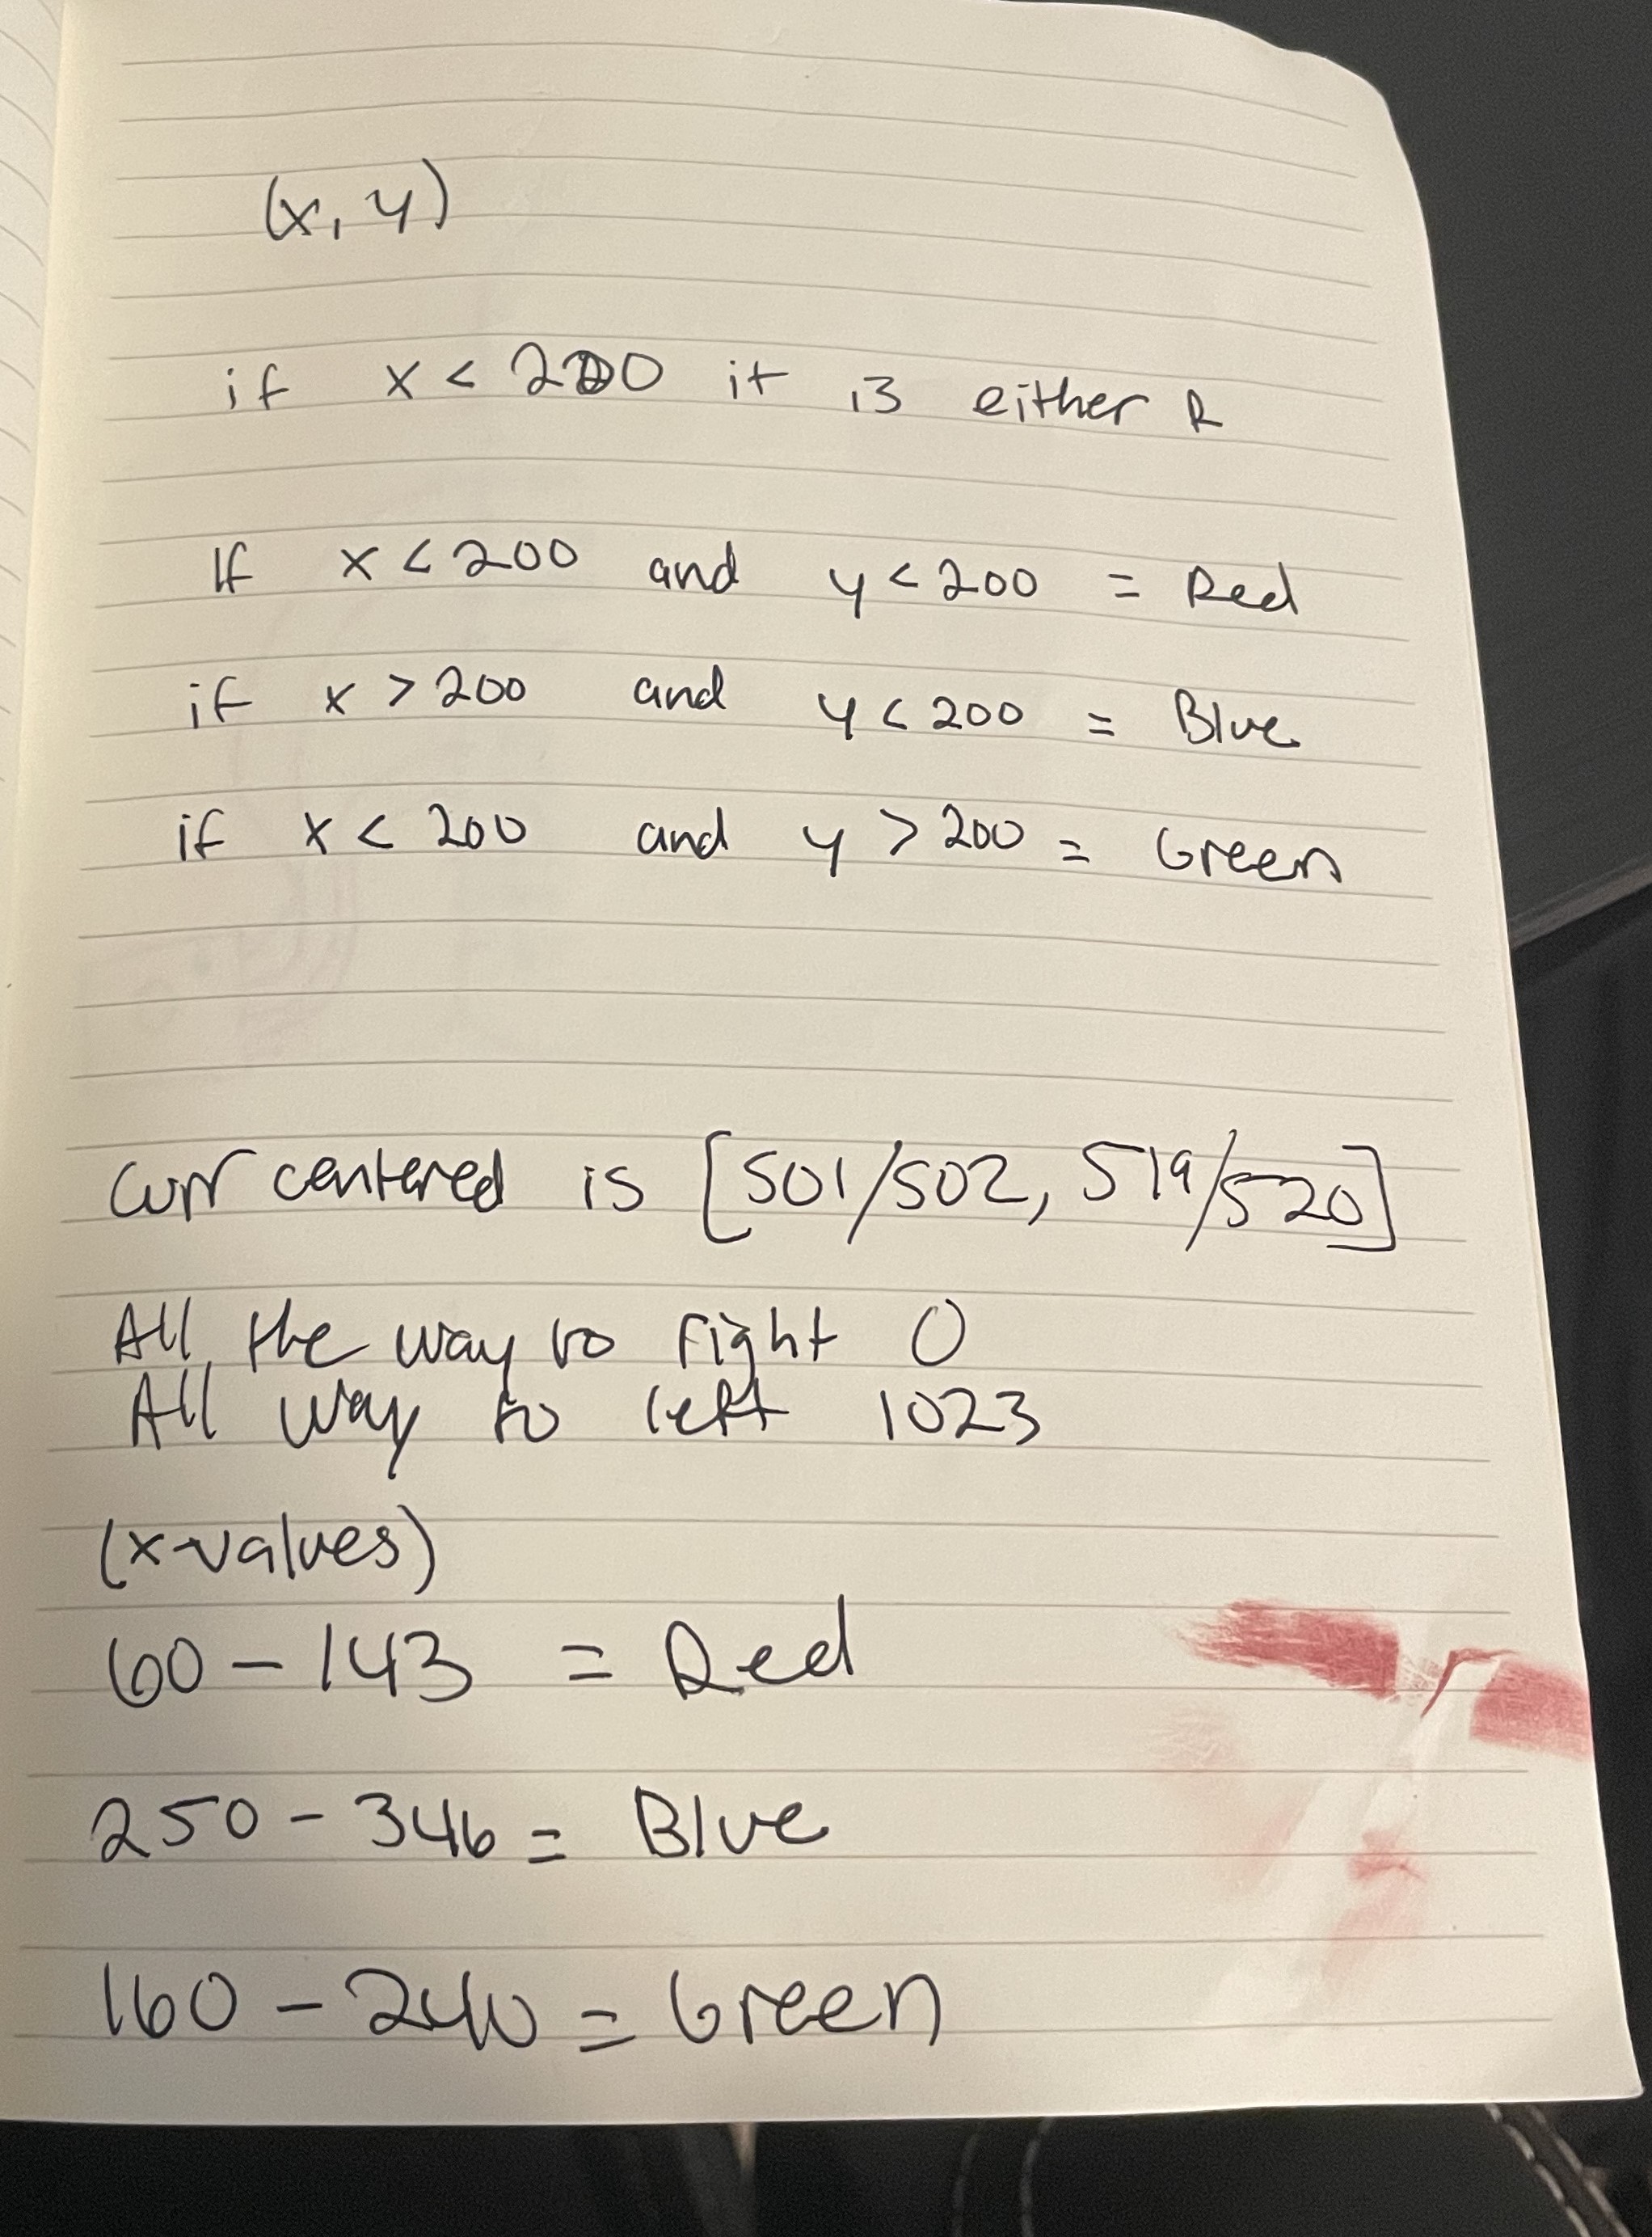 (x, y)
if x < 200 it is either R
If x < 200 and y < 200 = Red
if x > 200 and y < 200 = Blue
if x < 200 and y > 200 = Green
curr centered is [501/502, 519/520]
All the way to right 0
All way to left 1023
(x-values)
60 - 143 = Red
250 - 346 = Blue
160 - 240 = Green